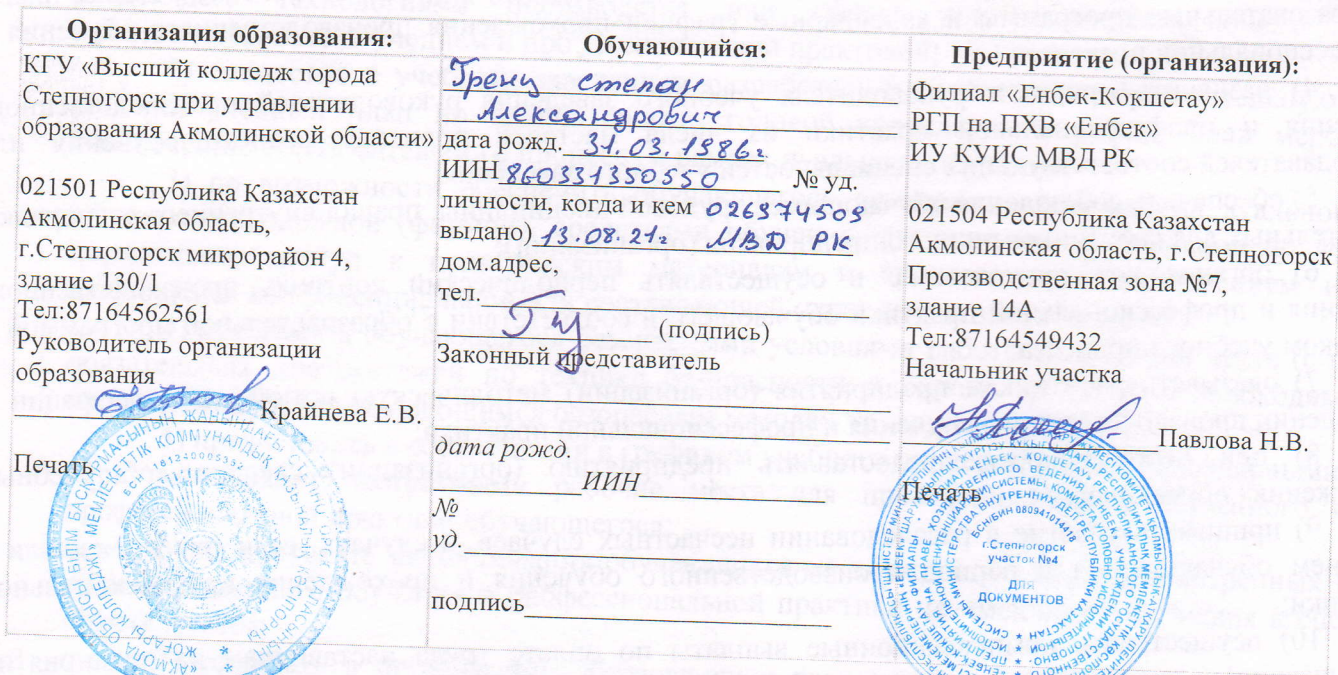 Организация образования:
КГУ «Высший колледж города
Степногорск при управлении
образования Акмолинской области»
021501 Республика Казахстан
Акмолинская область,
г.Степногорск микрорайон 4,
здание 130/1
Тел:87164562561
Руководитель организации
образования
Крайнева Е.В.
Печать
Обучающийся:
Степан
Александрович
дата рожд. 31.03.1986г
ИИН 860331350550 № уд.
личности, когда и кем 026974509
выдано) 13.08.21г. МВД РК
дом.адрес,
тел.
(подпись)
Законный представитель
дата рожд.
ИИН
№
уд.
подпись
Предприятие (организация):
Филиал «Енбек-Кокшетау»
РГП на ПХВ «Енбек»
ИУ КУИС МВД РК
021504 Республика Казахстан
Акмолинская область, г.Степногорск
Производственная зона №7,
здание 14А
Тел:87164549432
Начальник участка
Павлова Н.В.
Печать
г.Степногорск
участок №4
Для
документов